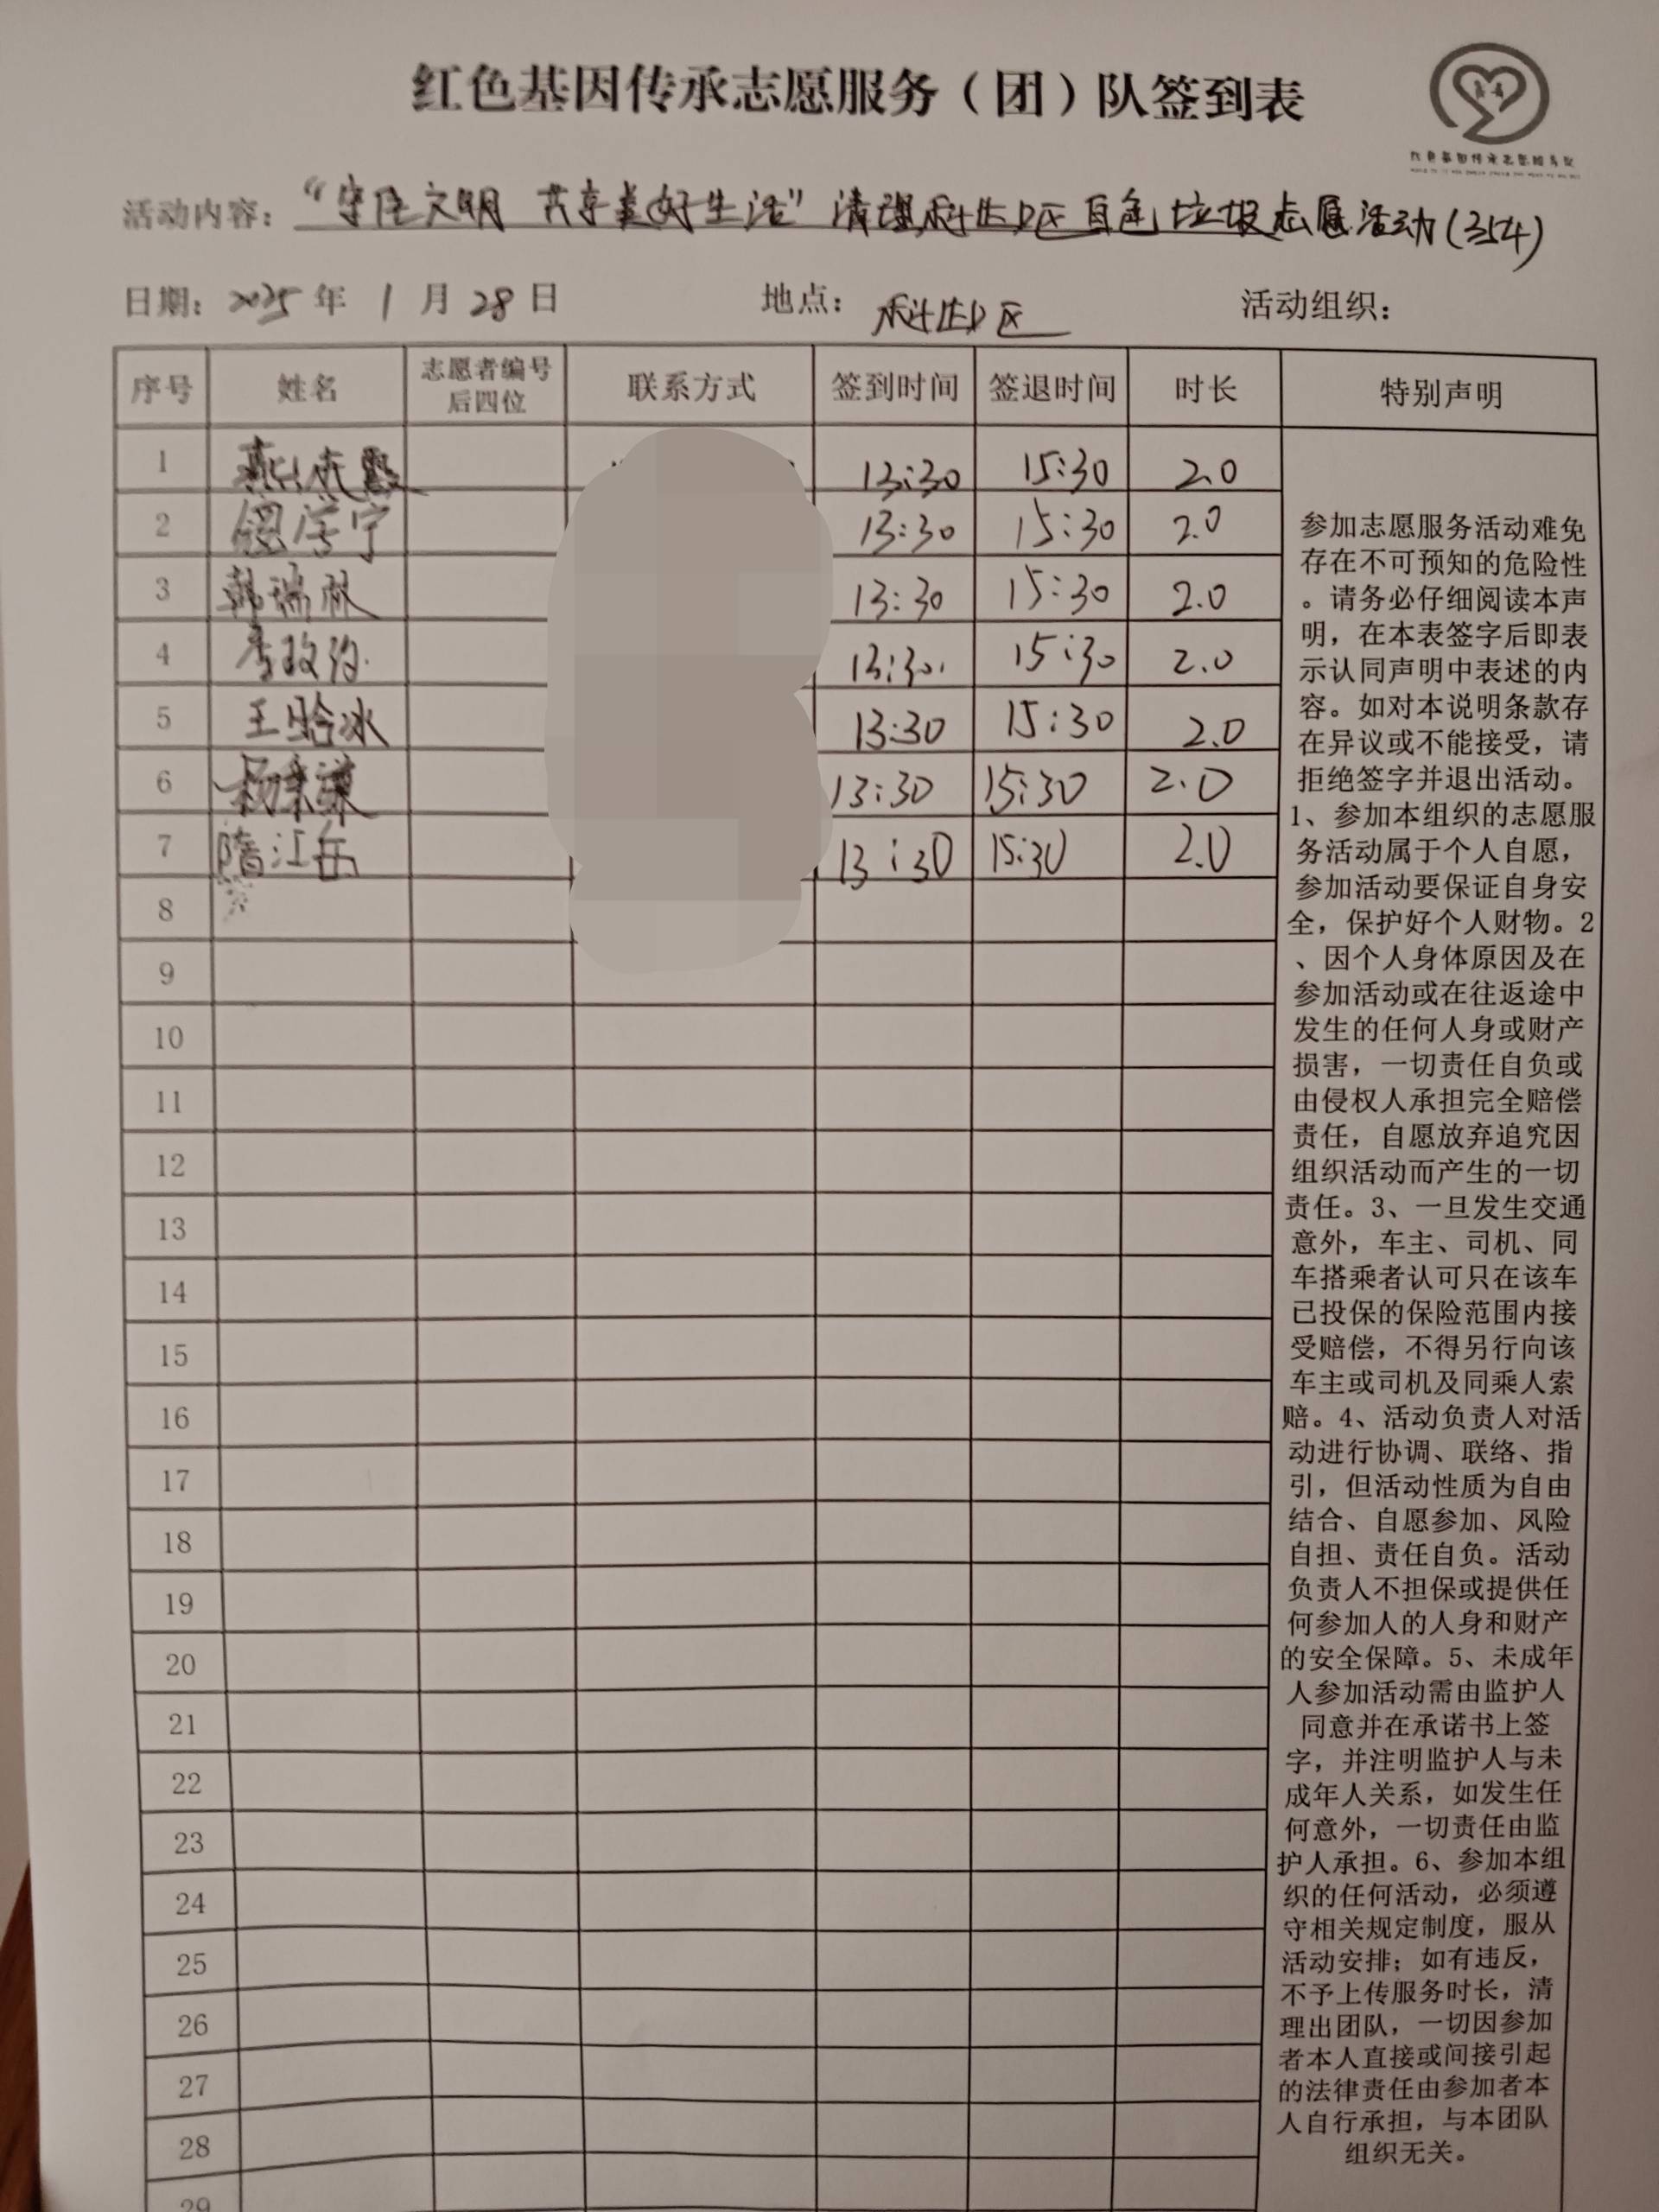 红色基因传承志愿服务（团）队签到表
活动内容：“守住文明 共享美好生活”清理科生小区白色垃圾志愿活动(354)
日期：2025年1月28日 地点： 小区 活动组织：
序号 姓名 志愿者编号后四位 联系方式 签到时间 签退时间 时长 特别声明
1 13:30 15:30 2.0
2 宁 13:30 15:30 2.0
3 韩瑞 13:30 15:30 2.0
4 李政 13:30 15:30 2.0
5 王晗冰 13:30 15:30 2.0
6 杨秉谦 13:30 15:30 2.0
7 隋江岳 13:30 15:30 2.0
8
9
10
11
12
13
14
15
16
17
18
19
20
21
22
23
24
25
26
27
28
29
参加志愿服务活动难免
存在不可预知的危险性
。请务必仔细阅读本声
明，在本表签字后即表
示认同声明中表述的内
容。如对本说明条款存
在异议或不能接受，请
拒绝签字并退出活动。
1、参加本组织的志愿服
务活动属于个人自愿，
参加活动要保证自身安
全，保护好个人财物。2
、因个人身体原因及在
参加活动或在往返途中
发生的任何人身或财产
损害，一切责任自负或
由侵权人承担完全赔偿
责任，自愿放弃追究因
组织活动而产生的一切
责任。3、一旦发生交通
意外，车主、司机、同
车搭乘者认可只在该车
已投保的保险范围内接
受赔偿，不得另行向该
车主或司机及同乘人索
赔。4、活动负责人对活
动进行协调、联络、指
引，但活动性质为自由
结合、自愿参加、风险
自担、责任自负。活动
负责人不担保或提供任
何参加人的人身和财产
的安全保障。5、未成年
人参加活动需由监护人
同意并在承诺书上签
字，并注明监护人与未
成年人关系，如发生任
何意外，一切责任由监
护人承担。6、参加本组
织的任何活动，必须遵
守相关规定制度，服从
活动安排；如有违反，
不予上传服务时长，清
理出团队，一切因参加
者本人直接或间接引起
的法律责任由参加者本
人自行承担，与本团队
组织无关。